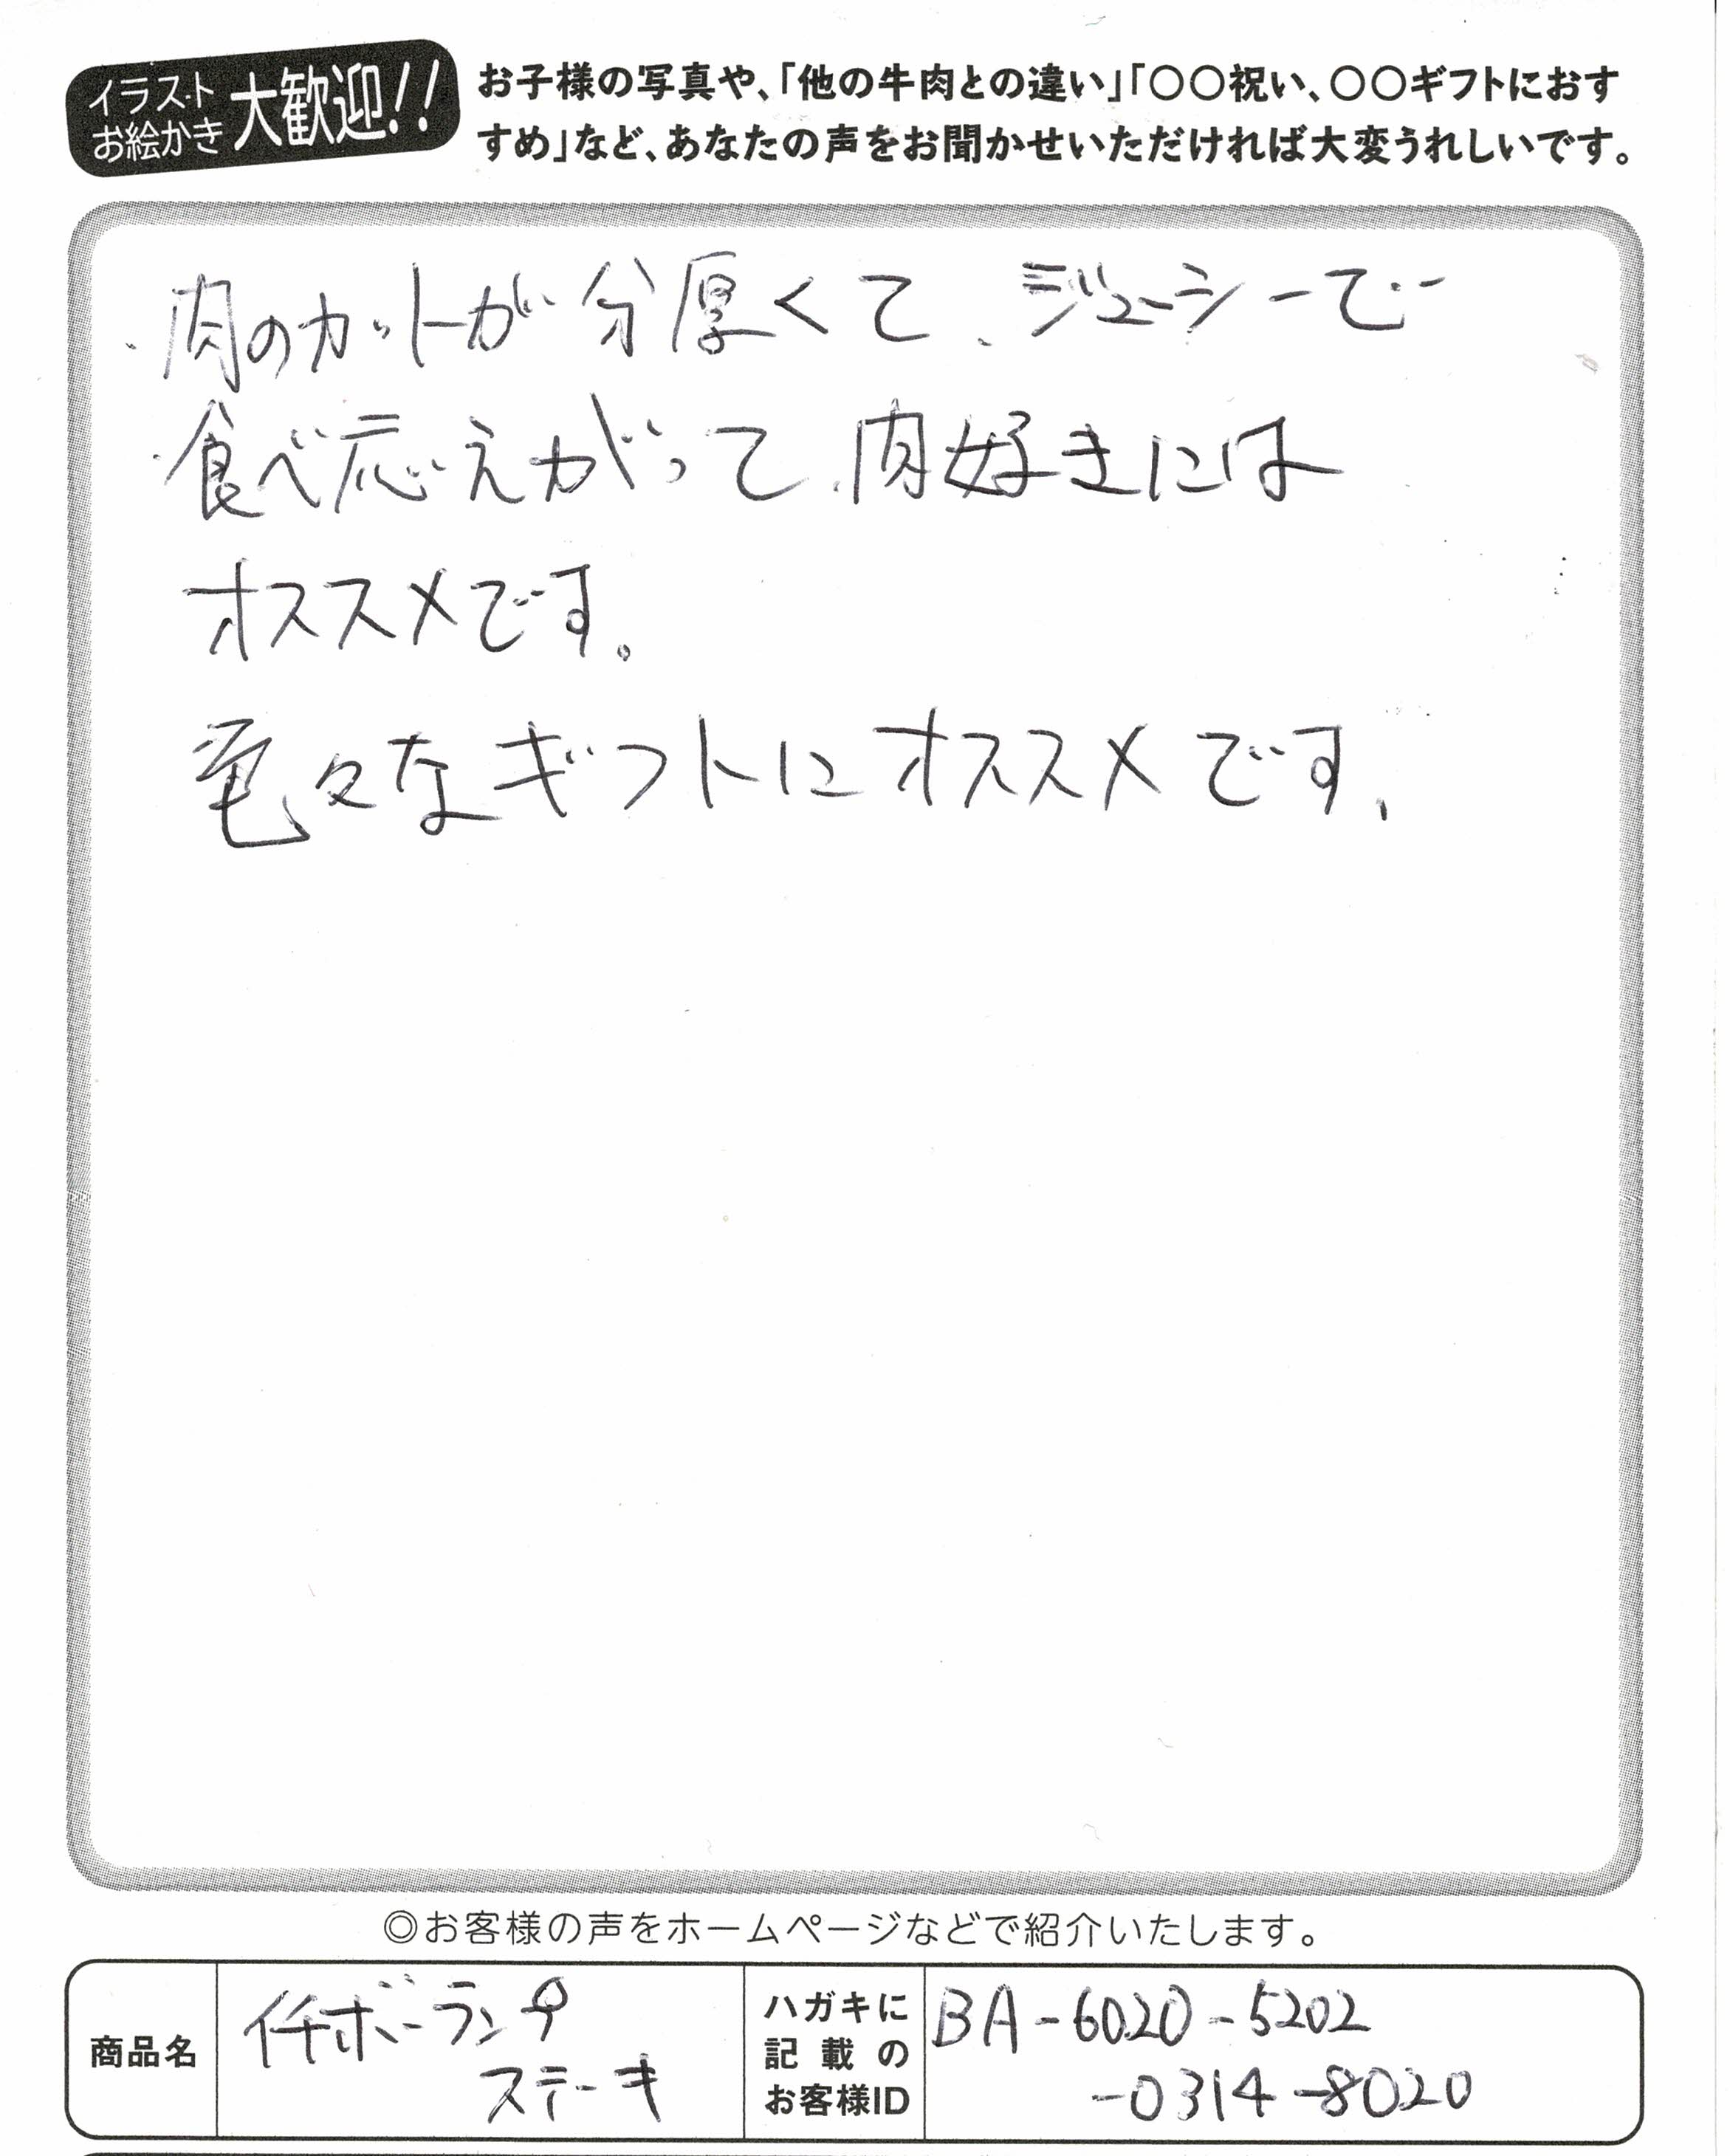 イラスト
お絵かき
大歓迎!!
お子様の写真や、「他の牛肉との違い」「〇〇祝い、〇〇ギフトにおす
すめ」など、あなたの声をお聞かせいただければ大変うれしいです。
肉のカットが分厚くて、ジューシーで
食べ応えがって、肉好きには
オススメです。
色々なギフトにオススメです、
◎お客様の声をホームページなどで紹介いたします。
商品名
イチボーランプ
ステーキ
ハガキに
記載の
お客様ID
BA-6020-5202
-0314-8020